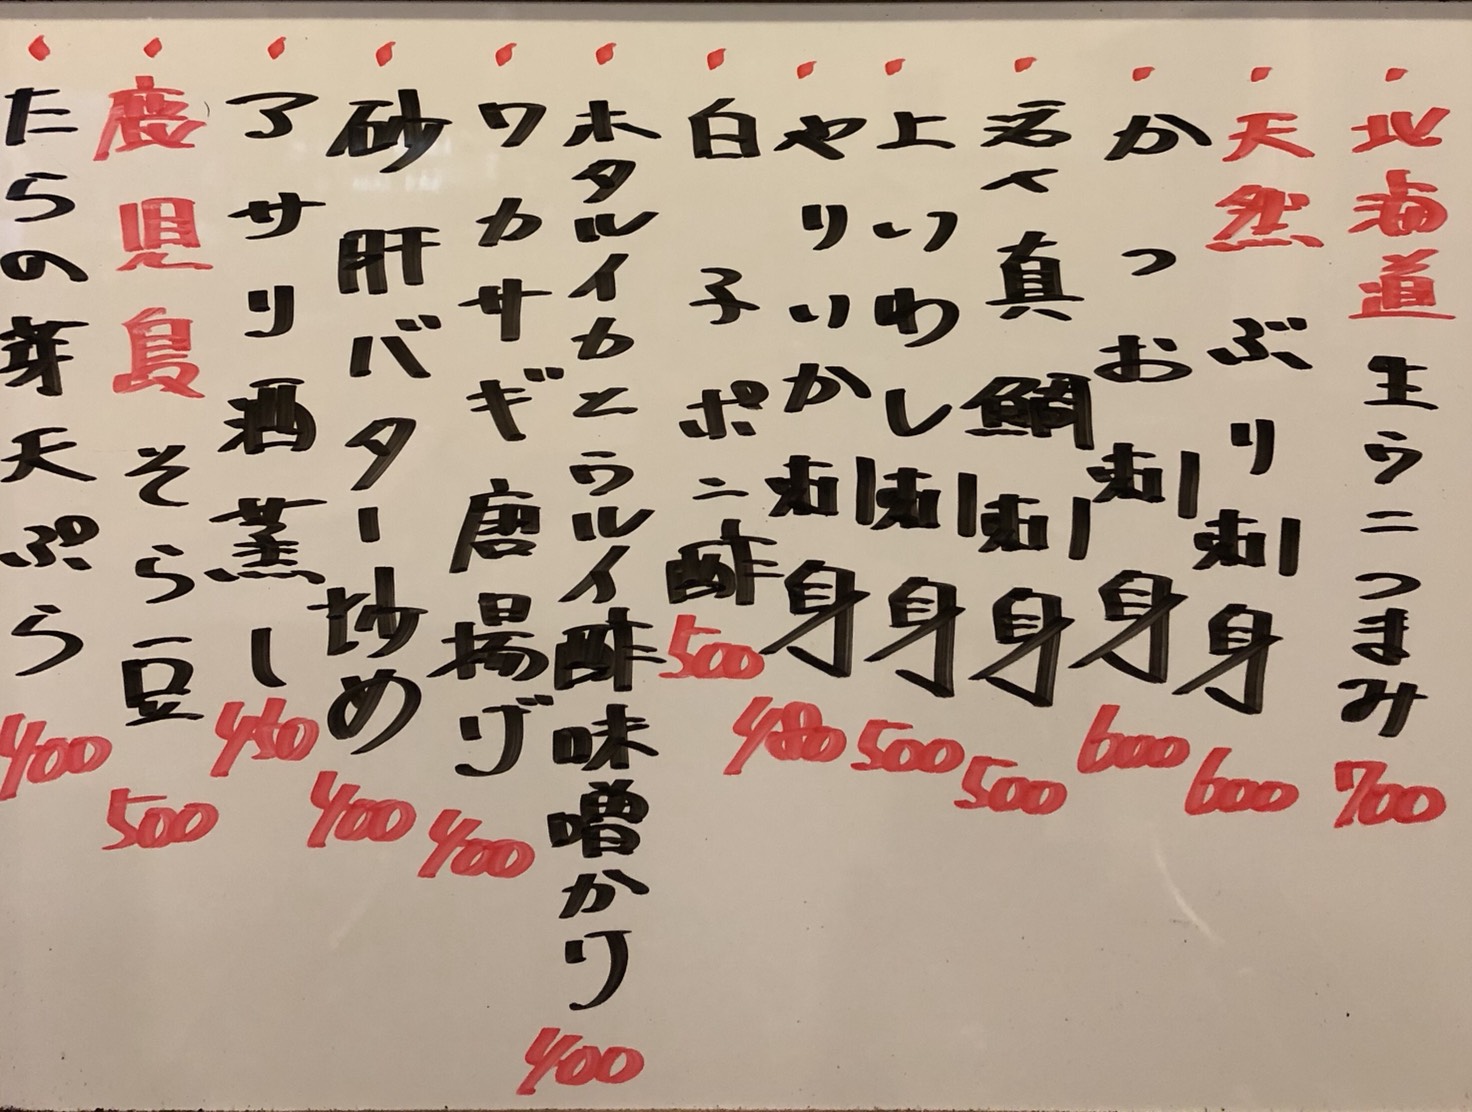 北海道 生ウニつまみ 700
天然 ぶり刺身 600
かつお刺身 600
真鯛刺身 500
上いわし刺身 500
やりいか刺身 480
白子ポン酢 500
ホタルイカとウルイ酢味噌かけ 400
ワカサギ唐揚げ 400
砂肝バター炒め 400
アサリ酒蒸し 450
鹿児島 そら豆 500
たらの芽天ぷら 400